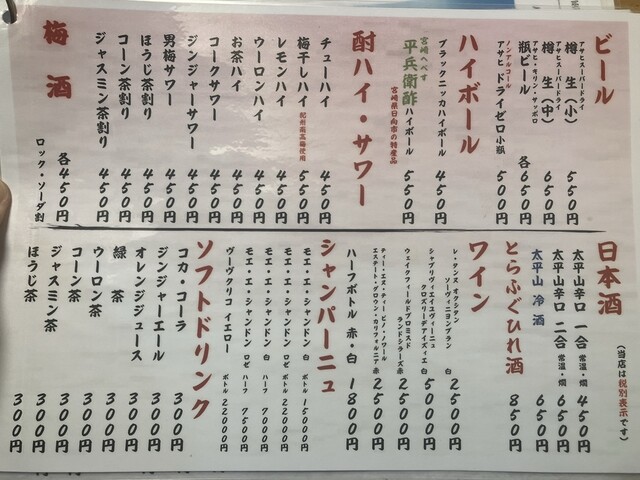 ビール
アサヒスーパードライ
樽 生(小) 550円
アサヒスーパードライ
樽 生(中) 650円
アサヒ・キリン・サッポロ
瓶ビール 各650円
ノンアルコール
アサヒ ドライゼロ小瓶 500円
ハイボール
ブラックニッカハイボール 450円
宮崎へべす
平兵衛酢ハイボール 550円
宮崎県日向市の特産品
酎ハイ・サワー
チューハイ 450円
梅干しハイ 紀州南高梅使用 550円
レモンハイ 450円
ウーロンハイ 450円
お茶ハイ 450円
コークサワー 450円
ジンジャーサワー 450円
男梅サワー 450円
ほうじ茶割り 450円
コーン茶割り 450円
ジャスミン茶割り 450円
梅酒 各450円
ロック・ソーダ割
日本酒
(当店は税別表示です)
太平山辛口 一合 常温・燗 450円
太平山辛口 二合 常温・燗 650円
太平山 冷酒 650円
とらふぐひれ酒 850円
ワイン
レ・タンヌ オクシタン
ソーヴィニヨンブラン 白 2500円
シャブリ ヴュイユヴェーニュ
クロズリーデアイズィエ 白 5000円
ウェイクフィールドプロミスド
ランドシラーズ赤 2500円
ティー・エヌ・ティー ピノ・ノワール
エステート・グロウン・カリフォルニア 赤 2500円
ハーフボトル 赤・白 1800円
シャンパーニュ
モエ・エ・シャンドン 白 ボトル 15000円
モエ・エ・シャンドン ロゼ ボトル 22000円
モエ・エ・シャンドン 白 ハーフ 7000円
モエ・エ・シャンドン ロゼ ハーフ 7500円
ヴーヴクリコ イエロー ボトル 22000円
ソフトドリンク
コカ・コーラ 300円
ジンジャーエール 300円
オレンジジュース 300円
緑 茶 300円
ウーロン茶 300円
コーン茶 300円
ジャスミン茶 300円
ほうじ茶 300円